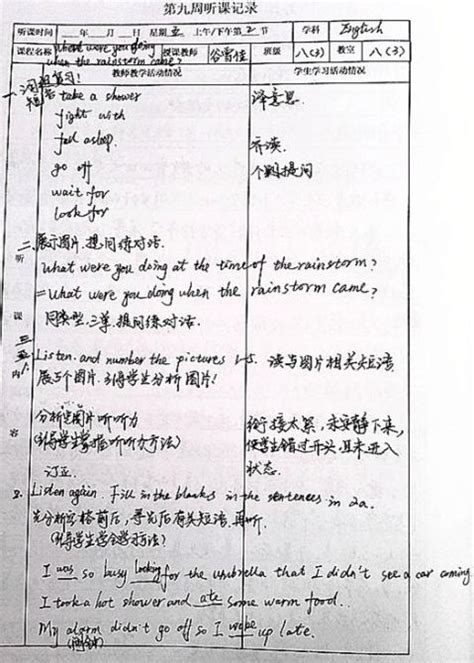 第九周听课记录
听课时间 ___年___月___日 星期五 上午/下午第2节 学科 English
课程名称 What were you doing when the rainstorm came? 授课教师 班级 八(3) 教室 八(3)
教师教学活动情况 学生学习活动情况
一、词组复习!
take a shower 译意思.
fight with
fall asleep. 齐读.
go off 个别提问
wait for
look for
二、展示图片,提问练对话.
What were you doing at the time of the rainstorm?
= What were you doing when the rainstorm came?
同类型,三等,提问练对话.
三
听课内容
1. Listen. and number the pictures 1-5. 读与图片相关短语
展5个图片,引得学生分析图片!
分析图片听听力 衔接太紧,未安静下来,
(引得学生掌握听听力方法) 使学生错过开头,且未进入
订正. 状态.
2. Listen again. Fill in the blanks in the sentences in 2a.
先分析空格前后,导先后有关短语,再听.
(引得学生学会学习方法)
I was so busy looking for the umbrella that I didn't see a car coming
I took a hot shower and ate some warm food..
My alarm didn't go off so I woke up late.
(闹钟)